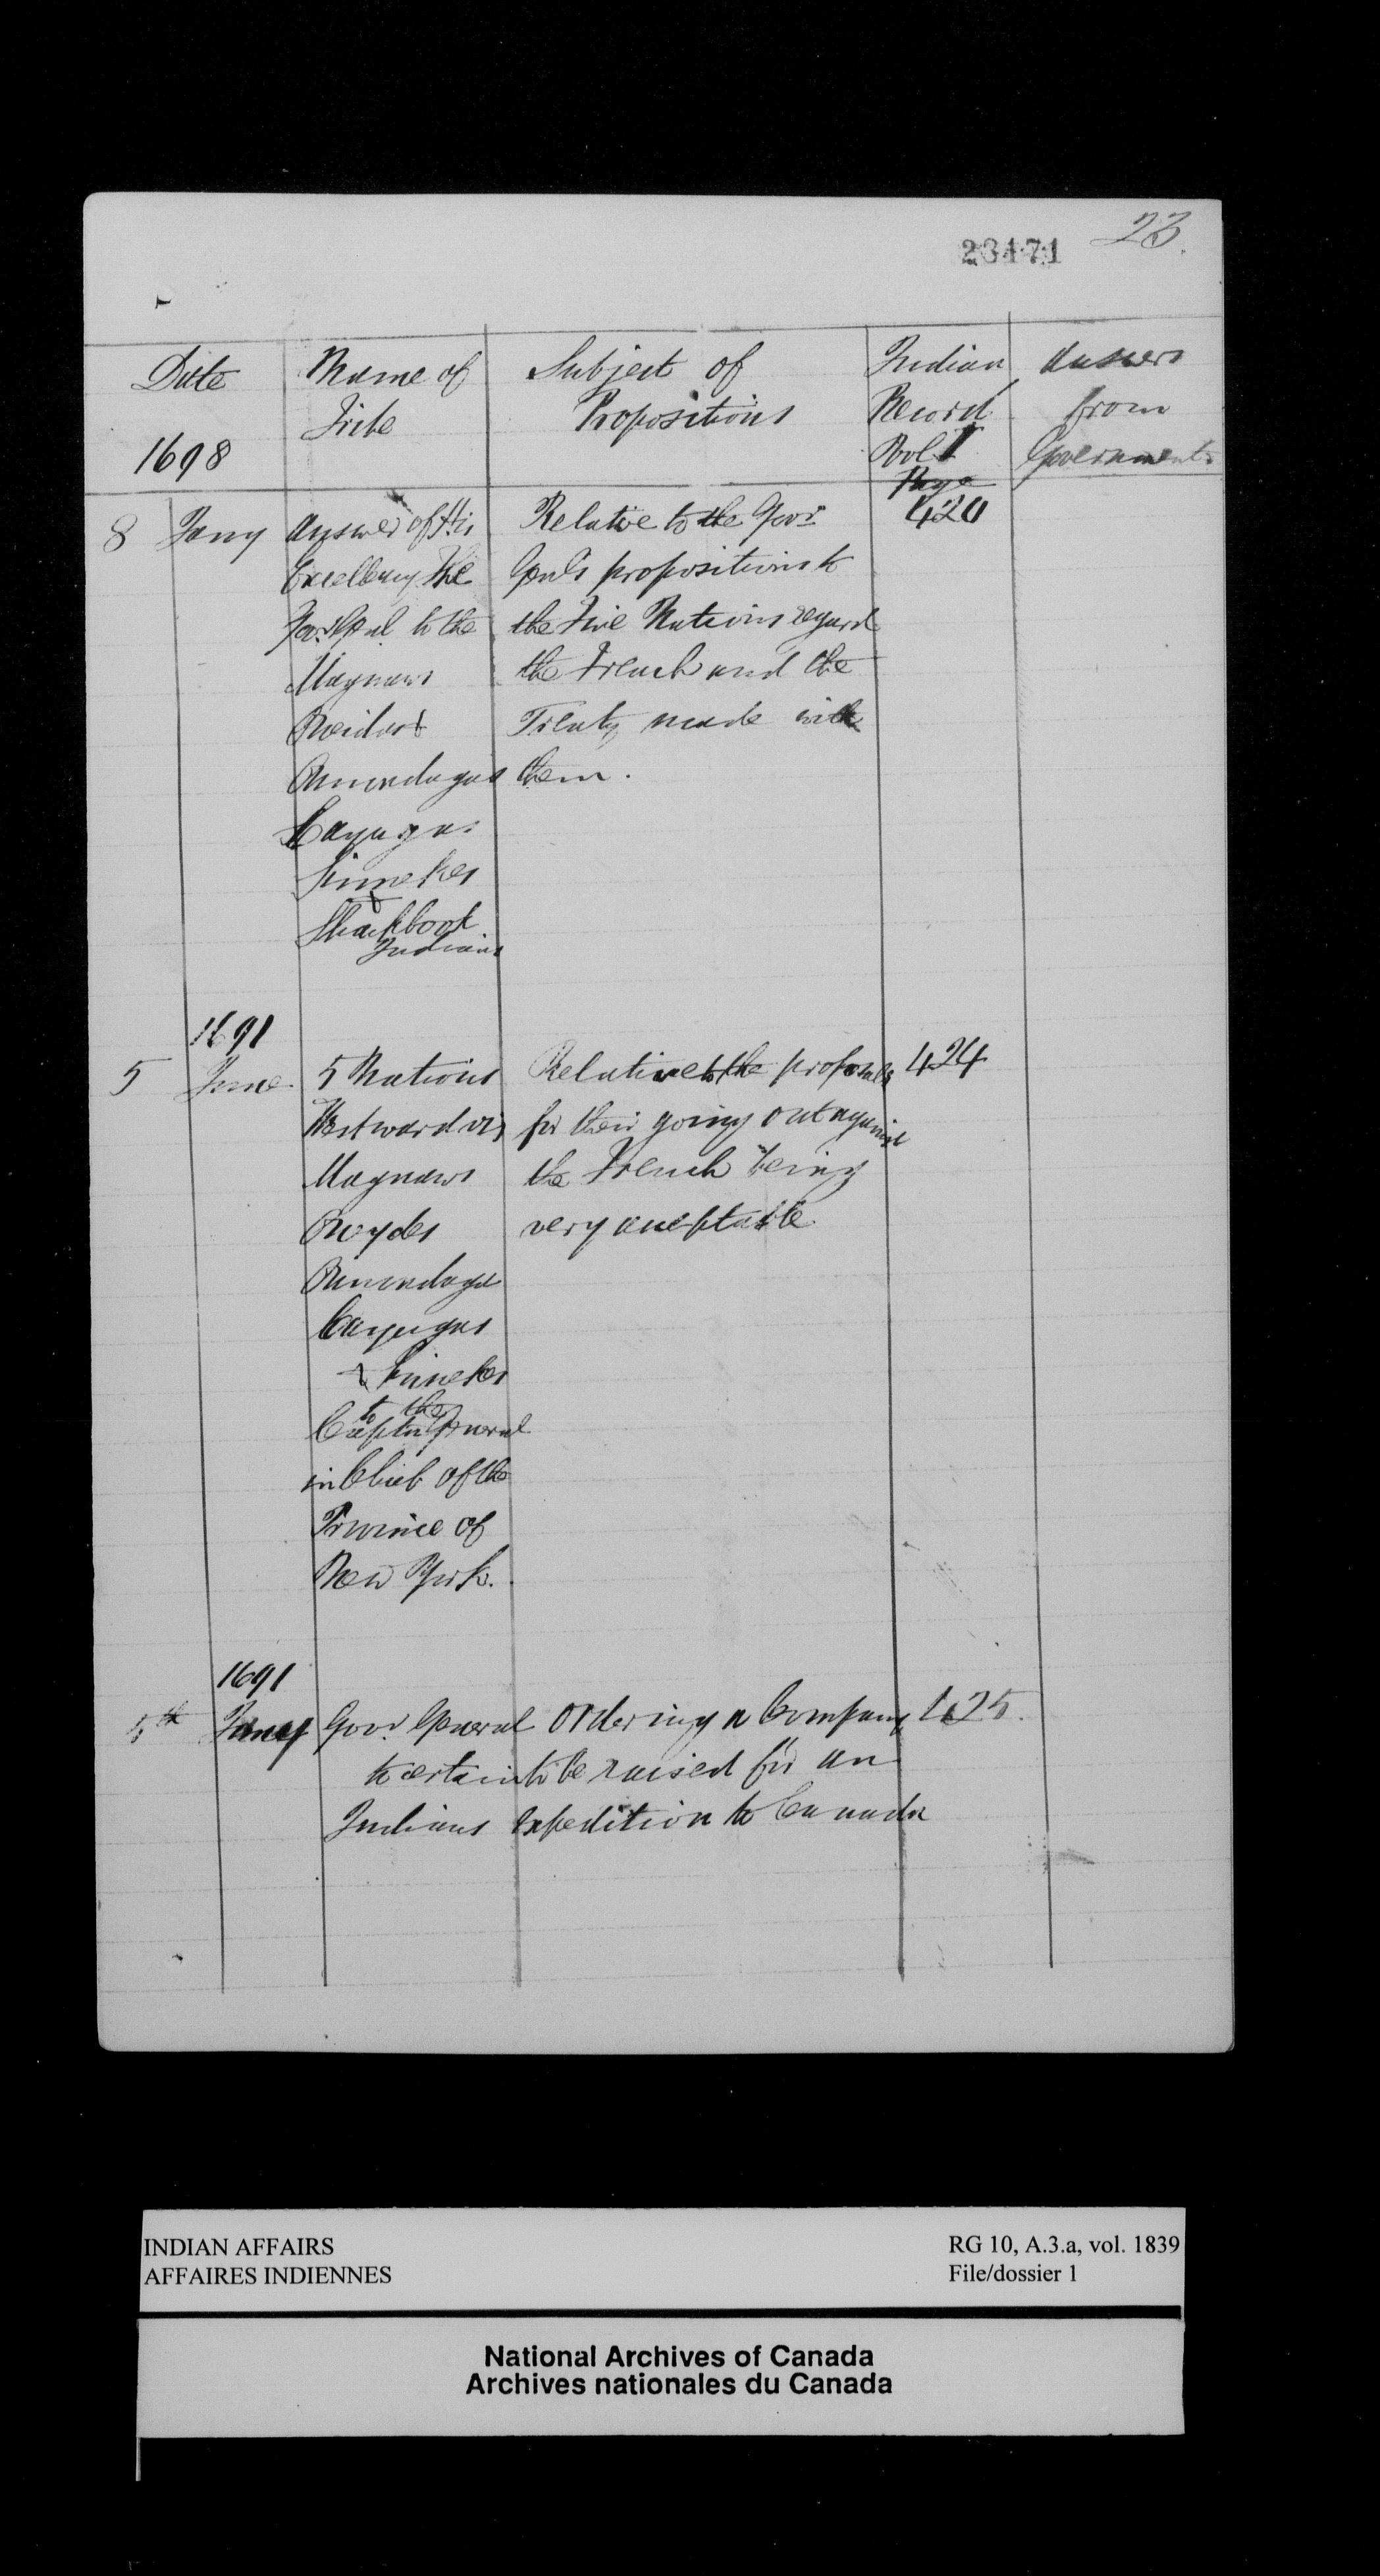 23.
23171
Date
1698
Name of
Tribe
Subject of
Propositions
Indian
Record
Vol I
Page
Answers
from
Government
8 Jany Answer of His Relative to the Govr 420
Excellency The Genls propositions to
Govr Genl to the the Five Nations regard
Maquaws the French and the
Oneidas & Treaty made with
Onnondagas them.
Cayugas
Sinnekes
&
Shackbook
Indians
1691
5 June 5 Nations Relative to the proposals 424
Westward viz for their going out against
Maquaws the French being
Oneydes very acceptable
Onnondages
Cayugas
& Sinnekes
to the
Captn General
in Chief of the
Province of
New York.
1691
5th June Govr General Ordering a Company 425.
to certain to be raised for an
Indians Expedition to Canada
INDIAN AFFAIRS
AFFAIRES INDIENNES
RG 10, A.3.a, vol. 1839
File/dossier 1
National Archives of Canada
Archives nationales du Canada